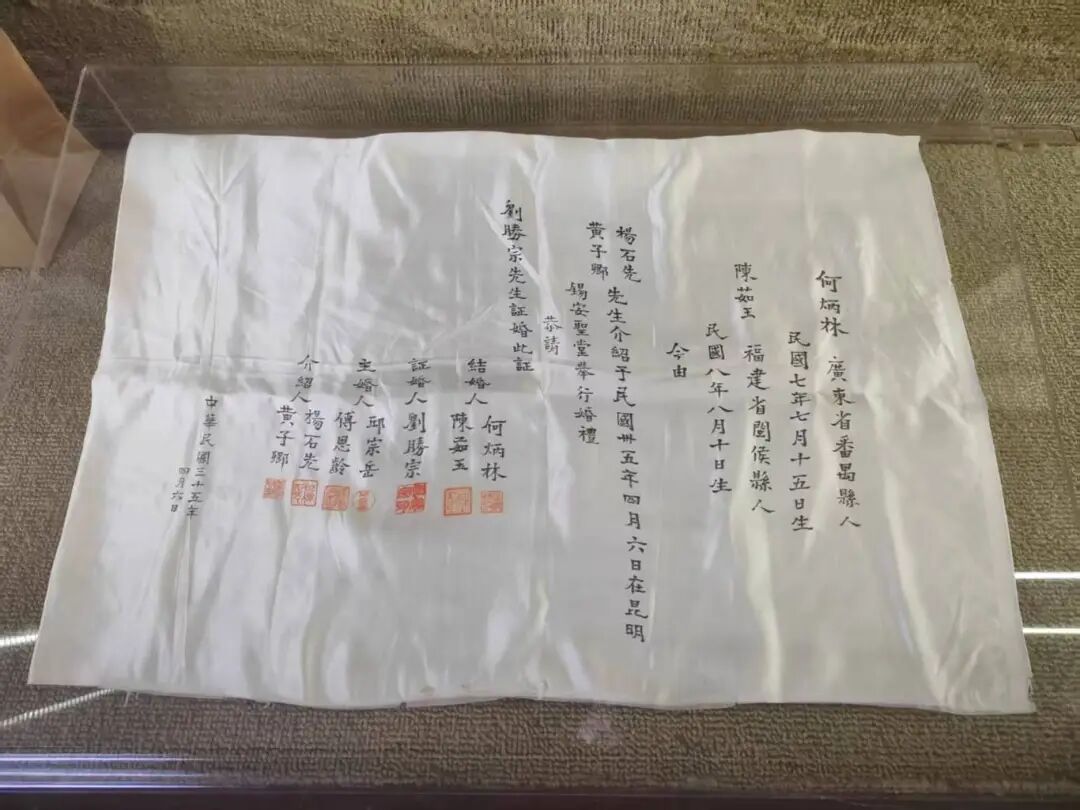 何炳林 廣東省番禺縣人
民國七年七月十五日生
陳茹玉 福建省閩侯縣人
民國八年八月十日生
今由
楊石先
黃子卿
先生介紹于民國卅五年四月六日在昆明
錫安聖堂舉行婚禮
恭請
劉勝宗先生証婚此証
結婚人 何炳林
陳茹玉
証婚人 劉勝宗
主婚人 邱宗岳
傅恩齡
介紹人 楊石先
黃子卿
中華民國三十五年
四月六日